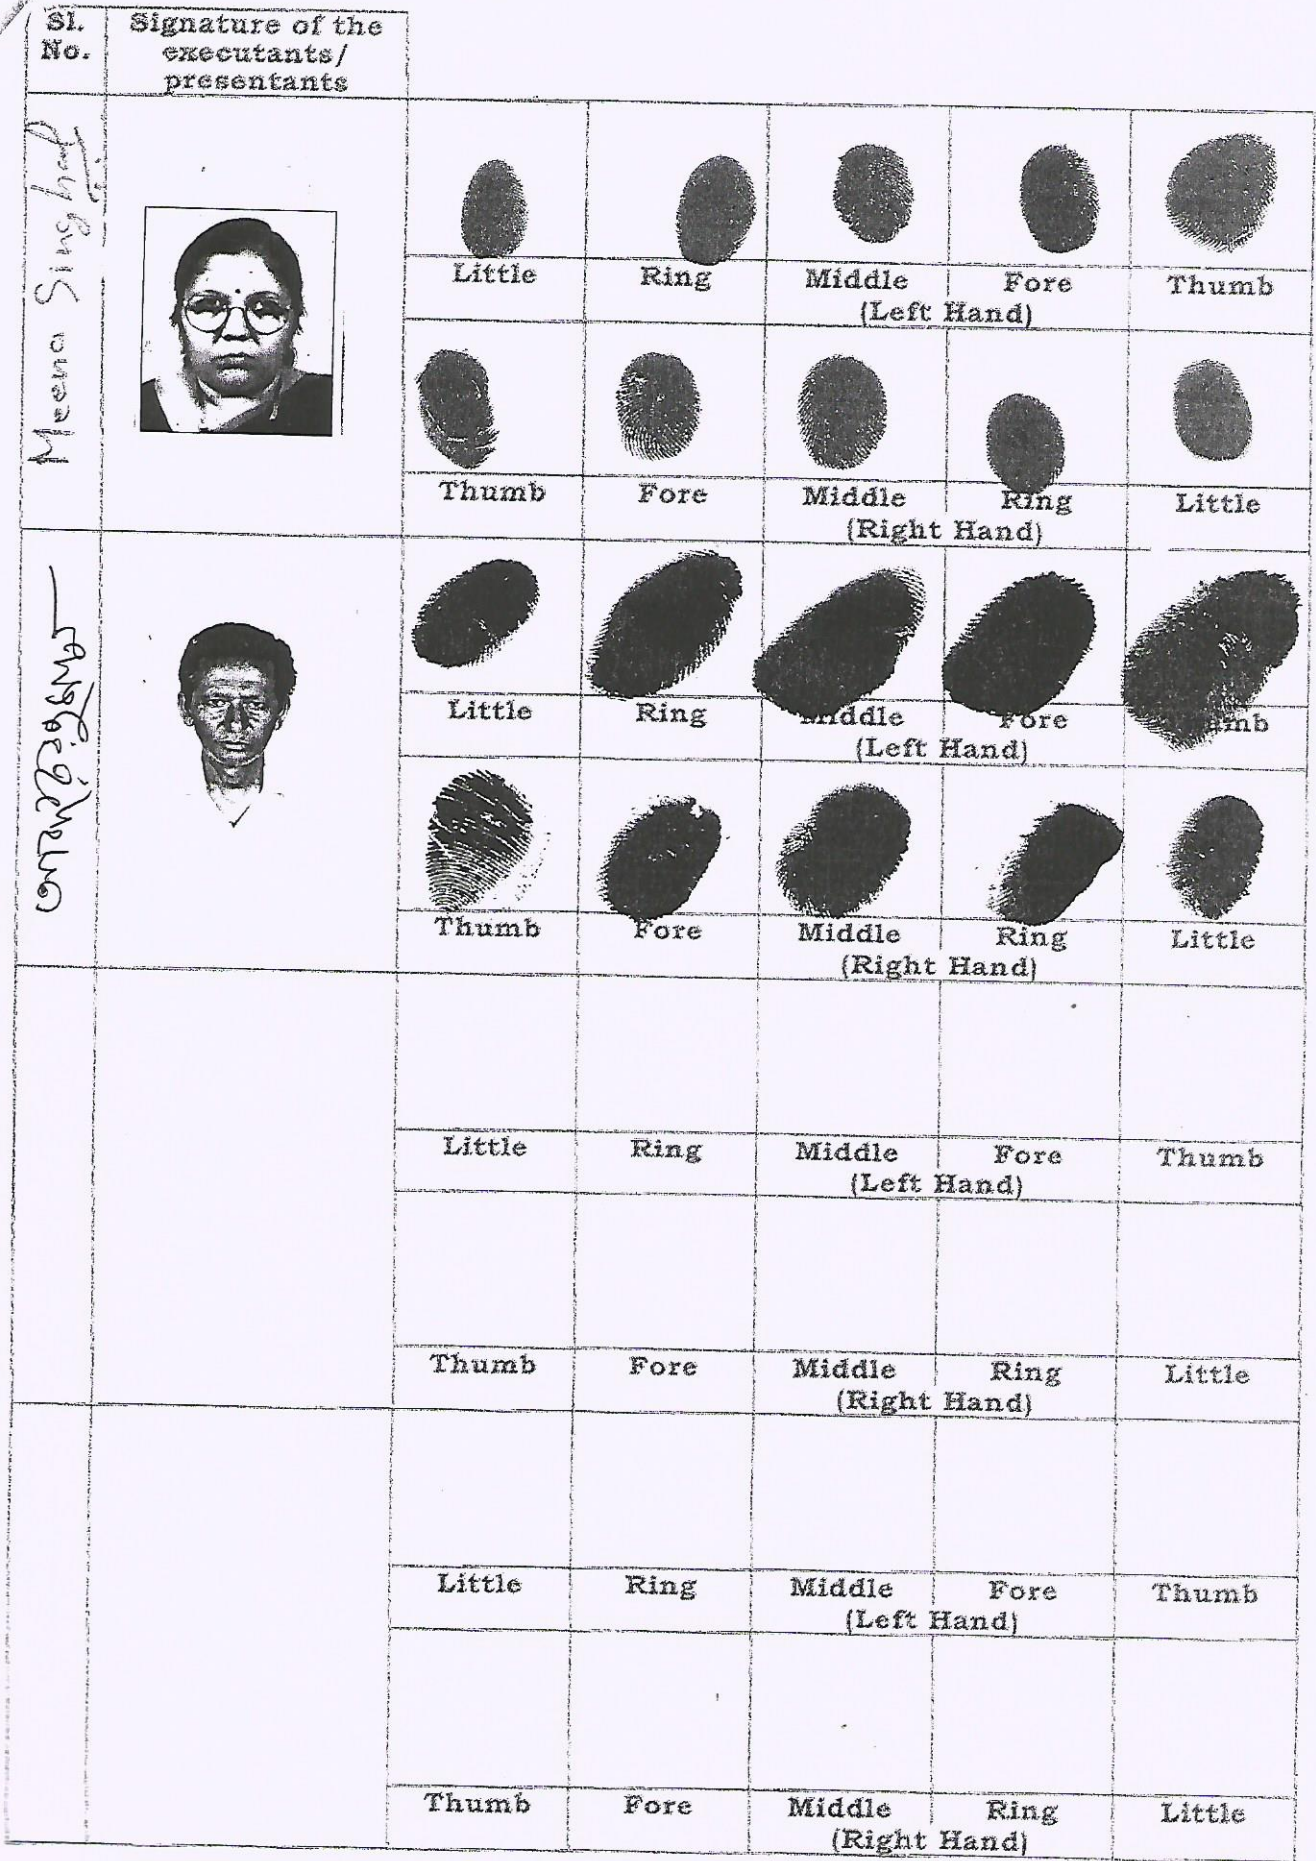 Sl.
No.
Signature of the
executants/
presentants
Meena Singhal
Little Ring Middle Fore Thumb
(Left Hand)
Thumb Fore Middle Ring Little
(Right Hand)
Little Ring Middle Fore Thumb
(Left Hand)
Thumb Fore Middle Ring Little
(Right Hand)
Little Ring Middle Fore Thumb
(Left Hand)
Thumb Fore Middle Ring Little
(Right Hand)
Little Ring Middle Fore Thumb
(Left Hand)
Thumb Fore Middle Ring Little
(Right Hand)